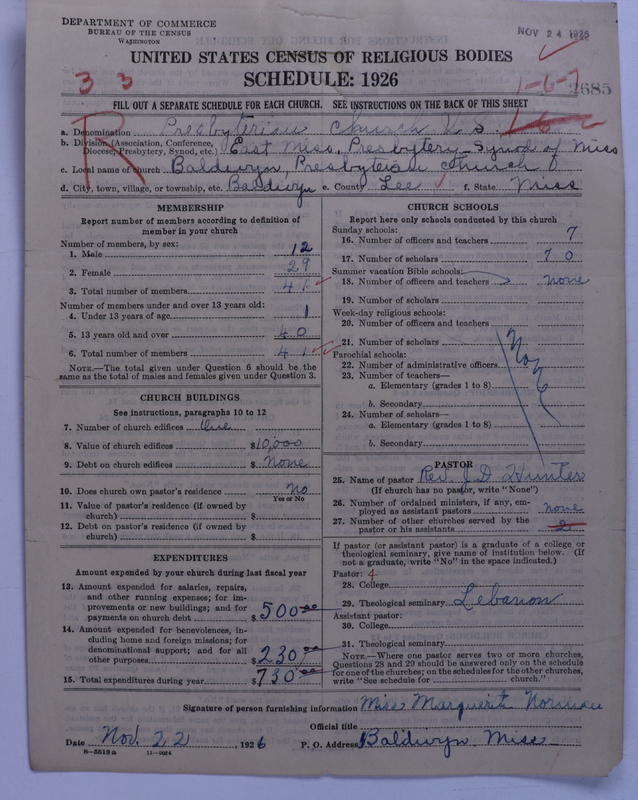 DEPARTMENT OF COMMERCE
BUREAU OF THE CENSUS
WASHINGTON
NOV 24 1926
UNITED STATES CENSUS OF RELIGIOUS BODIES
SCHEDULE: 1926
3 3
1-6-7
2685
FILL OUT A SEPARATE SCHEDULE FOR EACH CHURCH. SEE INSTRUCTIONS ON THE BACK OF THIS SHEET
R
a. Denomination Presbyterian Church U S
b. Division (Association, Conference, Diocese, Presbytery, Synod, etc.) East Miss. Presbytery - Synod of Miss
c. Local name of church Baldwyn, Presbyterian Church
d. City, town, village, or township, etc. Baldwyn e. County Lee f. State Miss
MEMBERSHIP
Report number of members according to definition of
member in your church
Number of members, by sex:
1. Male 12
2. Female 29
3. Total number of members 41
Number of members under and over 13 years old:
4. Under 13 years of age 1
5. 13 years old and over 40
6. Total number of members 41
NOTE.—The total given under Question 6 should be the
same as the total of males and females given under Question 3.
CHURCH BUILDINGS
See instructions, paragraphs 10 to 12
7. Number of church edifices One
8. Value of church edifices $10,000
9. Debt on church edifices $ None
10. Does church own pastor's residence No
Yes or No
11. Value of pastor's residence (if owned by
church) $
12. Debt on pastor's residence (if owned by
church) $
EXPENDITURES
Amount expended by your church during last fiscal year
13. Amount expended for salaries, repairs,
and other running expenses; for im-
provements or new buildings; and for
payments on church debt $ 500.00
14. Amount expended for benevolences, in-
cluding home and foreign missions; for
denominational support; and for all
other purposes $ 230.00
15. Total expenditures during year $ 730.00
CHURCH SCHOOLS
Report here only schools conducted by this church
Sunday schools:
16. Number of officers and teachers 7
17. Number of scholars 70
Summer vacation Bible schools:
18. Number of officers and teachers none
19. Number of scholars
Week-day religious schools:
20. Number of officers and teachers
21. Number of scholars
Parochial schools:
22. Number of administrative officers
23. Number of teachers—
a. Elementary (grades 1 to 8)
b. Secondary
24. Number of scholars—
a. Elementary (grades 1 to 8)
b. Secondary
None
PASTOR
25. Name of pastor Rev. J. D. Hunter
(If church has no pastor, write "None")
26. Number of ordained ministers, if any, em-
ployed as assistant pastors none
27. Number of other churches served by the
pastor or his assistants 2
If pastor (or assistant pastor) is a graduate of a college or
theological seminary, give name of institution below. (If
not a graduate, write "No" in the space indicated.)
Pastor: 4
28. College
29. Theological seminary Lebanon
Assistant pastor:
30. College
31. Theological seminary
NOTE.—Where one pastor serves two or more churches,
Questions 28 and 29 should be answered only on the schedule
for one of the churches; on the schedules for the other churches,
write "See schedule for church."
Signature of person furnishing information Miss Marguerite Norman
Official title
Date Nov. 22, 1926 P. O. Address Baldwyn Miss
8—5519a 11—9024